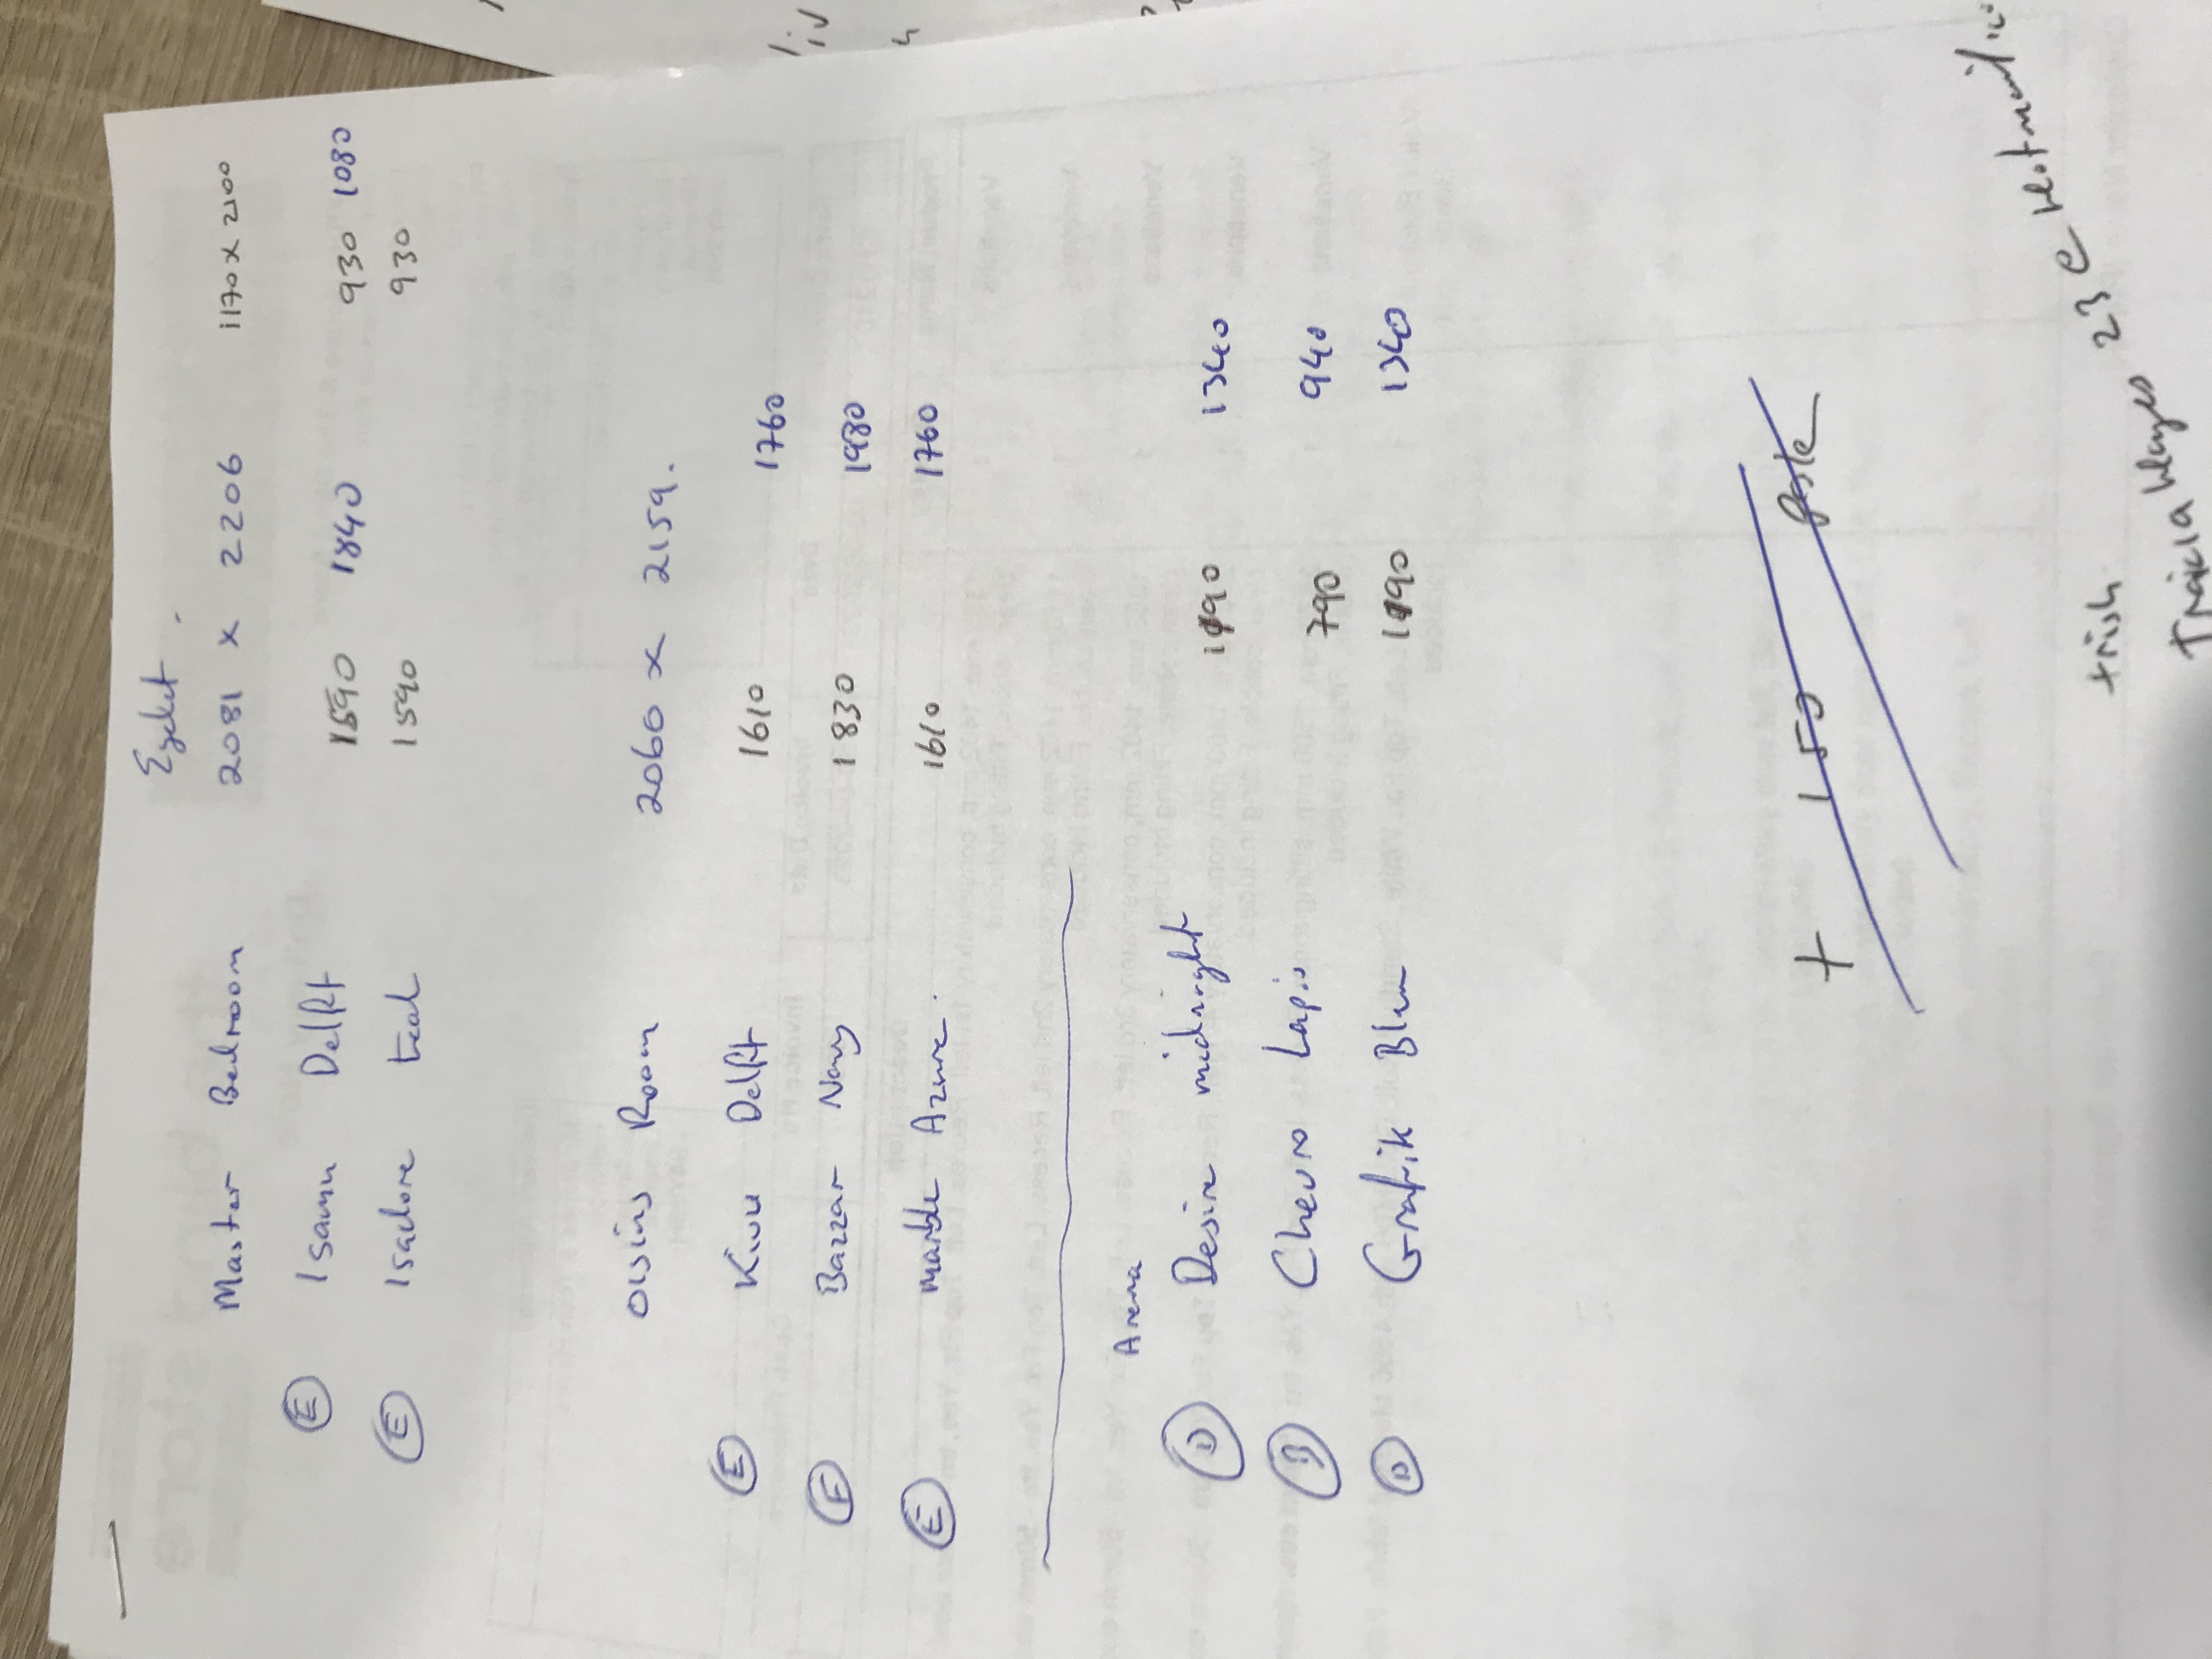 Eyelet.
Master Bedroom 2081 x 2206 1170 x 2100
E Isamu Delft 1590 1840 930 1080
E Isadore teal 1590 930
Olsins Room 2060 x 2159.
E Kivu Delft 1610 1760
E Bazzar Navy 1830 1980
E Marble Azure. 1610 1760
Arena
D Desire midnight 1190 1340
D Chevro Lapis 790 940
D Grafik Blue 1190 1340
+ 150
trish
Tricia Hayes 23 @ Hotmail